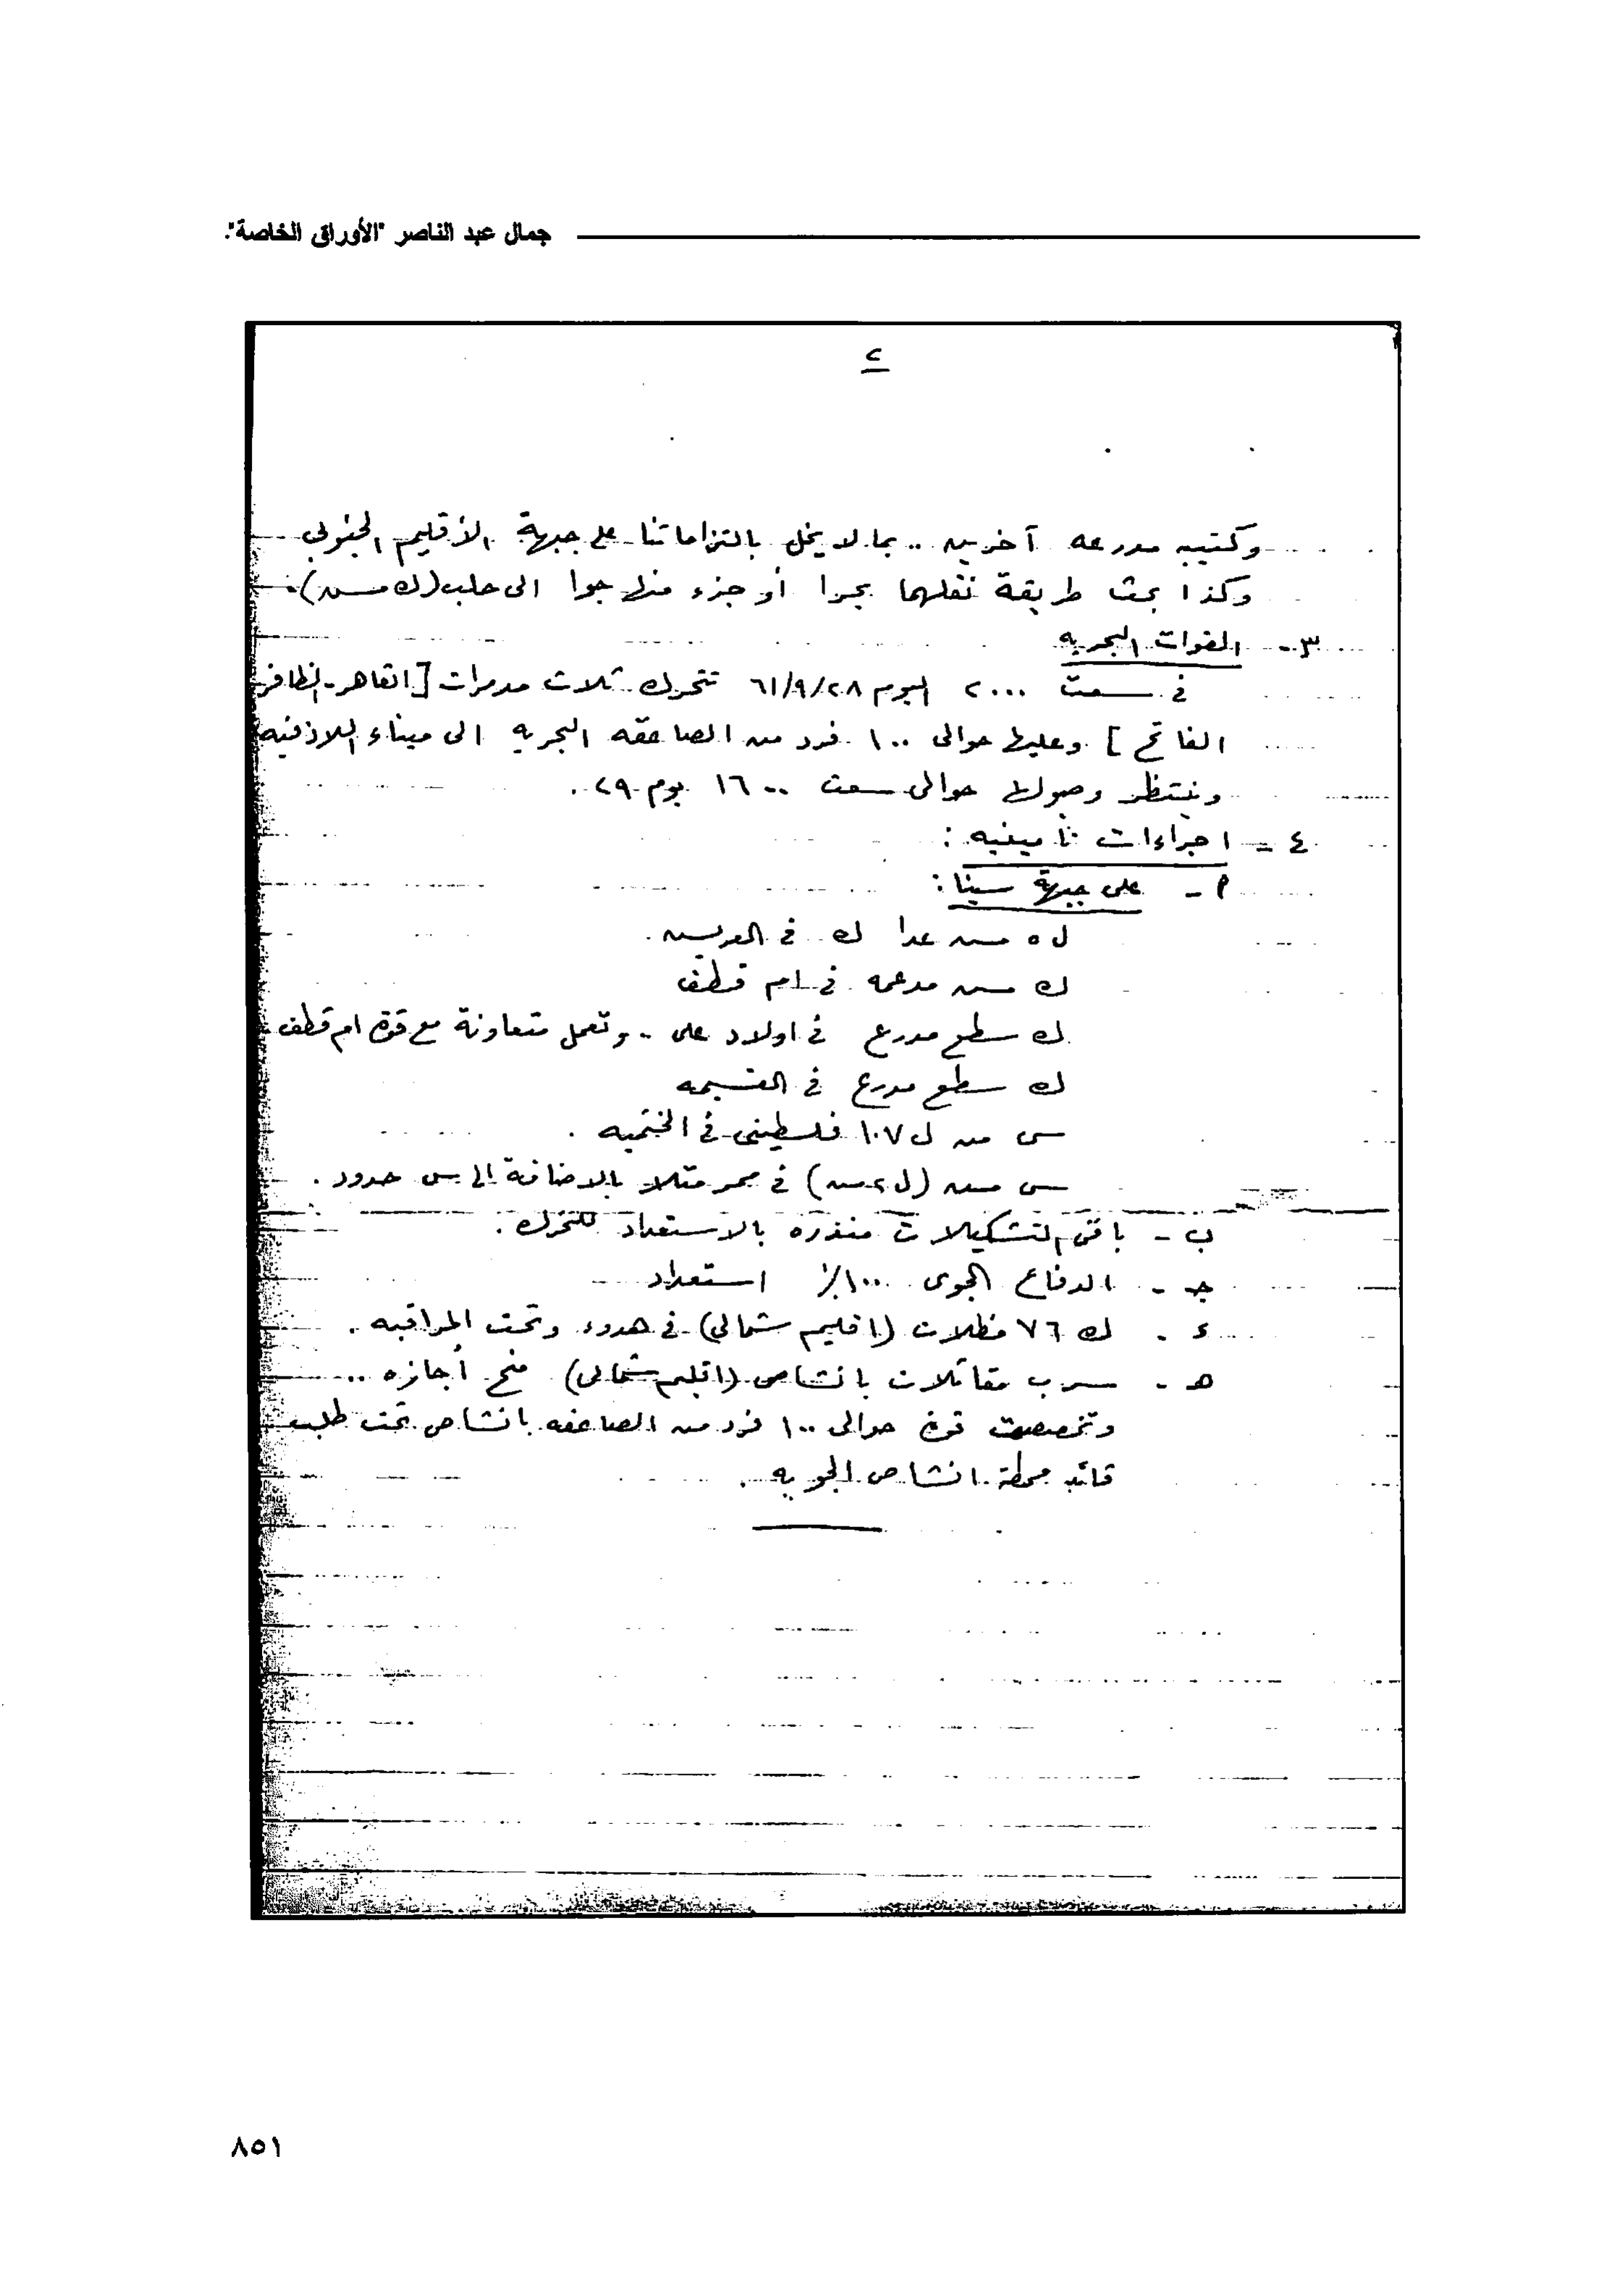 جمال عبد الناصر "الأوراق الخاصة".
٢
وكتيبه مدرعه آخريه .. بما لا يخل بالتزاماتنا على جبهة الأقليم الجنوبى
وكذا بحث طريقة نقلهما بحرا أو جزء منها جوا الى حلب (ك مس)
٣- القوات البحريه
فى سعت ٢٠٠٠ اليوم ٦١/٩/٢٨ تتحرك ثلاث مدمرات [القاهر - الظافر
الفاتح] وعليها حوالى ١٠٠ فرد من الصاعقه البحريه الى ميناء اللاذقيه
وينتظر وصولها حوالى سعت ١٦٠٠ يوم ٢٩ .
٤ = اجراءات تأمينيه :
أ - على جبهة سينا :
ل ٥ مس عدا ك فى العريش .
ك مس مدعمه فى ام قطف
ك سطع مدرع فى اولاد على .. وتعمل متعاونة مع قوة ام قطف
ك سطع مدرع فى القسيمه
س من ل ١٠٧ فلسطينى فى الختميه .
س مس (ل ٢ مس) فى ممر متلا بالاضافة الى س حدود .
ب - باقى التشكيلات منذره بالاستعداد للتحرك .
جـ - الدفاع الجوى ١٠٠٪ استعداد
ء . ك ٧٦ مظلات (اقليم شمالى) فى هدوء وتحت المراقبه .
هـ - سرب مقاتلات بانشاص (اقليم شمالى) منح أجازه ..
وتخصصت قوة حوالى ١٠٠ فرد من الصاعقه بانشاص تحت طلب
قائد محطة انشاص الجويه .
٨٥١